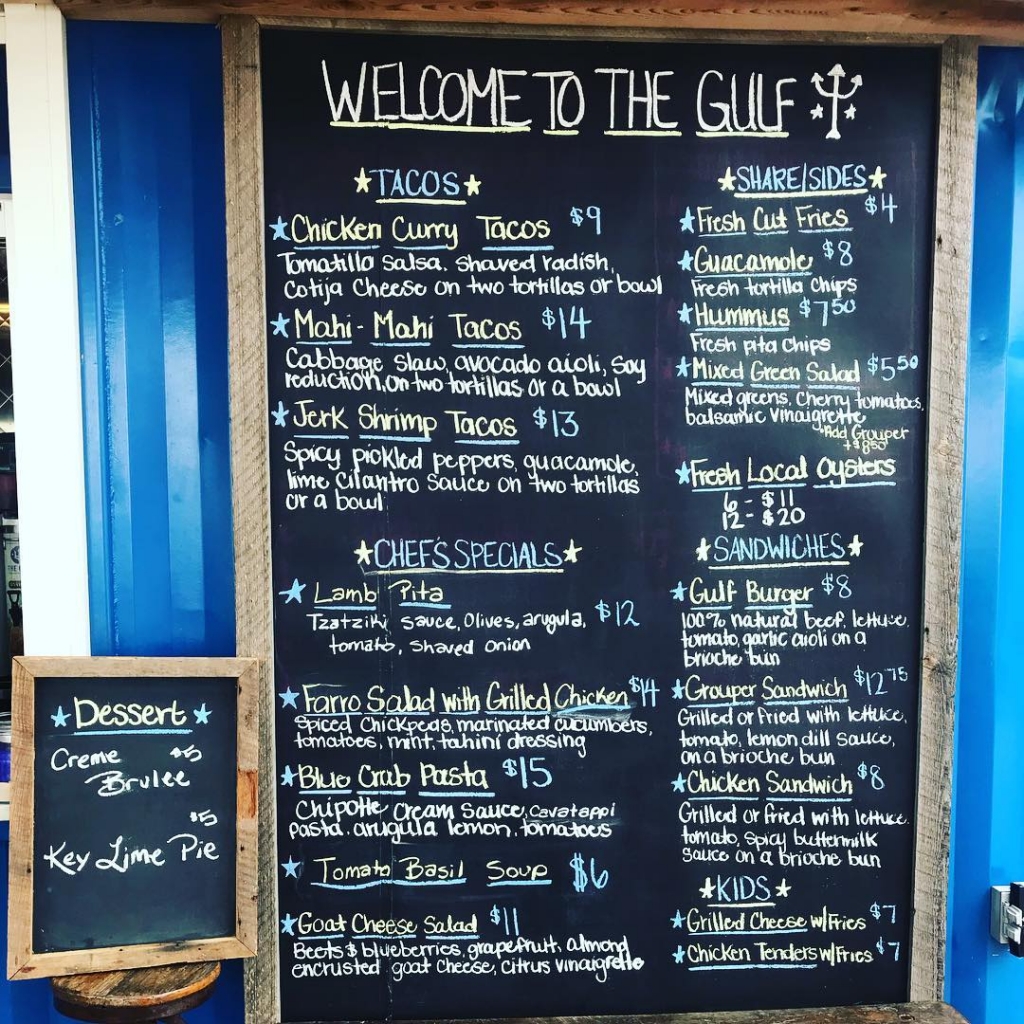 WELCOME TO THE GULF
TACOS
Chicken Curry Tacos $9
Tomatillo Salsa, shaved radish,
Cotija Cheese on two tortillas or bowl
Mahi-Mahi Tacos $14
Cabbage Slaw, avocado aioli, Soy
reduction, on two tortillas or a bowl
Jerk Shrimp Tacos $13
Spicy pickled peppers, guacamole,
lime Cilantro Sauce on two tortillas
or a bowl
CHEF'S SPECIALS
Lamb Pita
Tzatziki sauce, Olives, arugula, $12
tomato, Shaved onion
Farro Salad with Grilled Chicken $14
Spiced Chickpeas, marinated cucumbers,
tomatoes, mint, tahini dressing
Blue Crab Pasta $15
Chipotle Cream Sauce, Cavatappi
pasta, arugula lemon, tomatoes
Tomato Basil Soup $6
Goat Cheese Salad $11
Beets & blueberries, grapefruit, almond
encrusted goat Cheese, citrus vinaigrette
SHARE/SIDES
Fresh Cut Fries $4
Guacamole $8
Fresh tortilla chips
Hummus $7.50
Fresh pita Chips
Mixed Green Salad $5.50
Mixed greens, Cherry tomatoes,
balsamic vinaigrette
*Add Grouper
+$8.50
Fresh Local Oysters
6 - $11
12 - $20
SANDWICHES
Gulf Burger $8
100% natural beef, lettuce,
tomato, garlic aioli on a
brioche bun
Grouper Sandwich $12.75
Grilled or fried with lettuce,
tomato, lemon dill sauce,
on a brioche bun
Chicken Sandwich $8
Grilled or fried with lettuce,
tomato, spicy buttermilk
Sauce on a brioche bun
KIDS
Grilled Cheese w/Fries $7
Chicken Tenders w/Fries $7
Dessert
Creme $5
Brulee
$5
Key Lime Pie